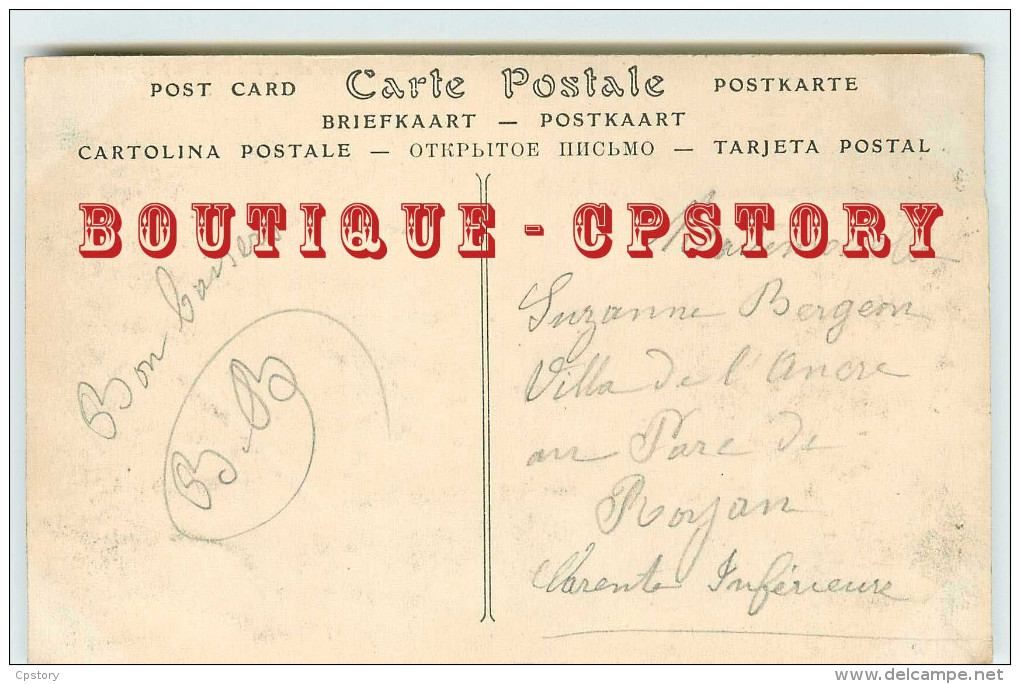 POST CARD Carte Postale POSTKARTE
BRIEFKAART — POSTKAART
CARTOLINA POSTALE — ОТКРЫТОЕ ПИСЬМО — TARJETA POSTAL
BOUTIQUE - CPSTORY
Bon baisers
B-B
Mademoiselle
Suzanne Bergeon
Villa de l'Ancre
au Parc de
Royan
Charente Inférieure
Cpstory
www.delcampe.net